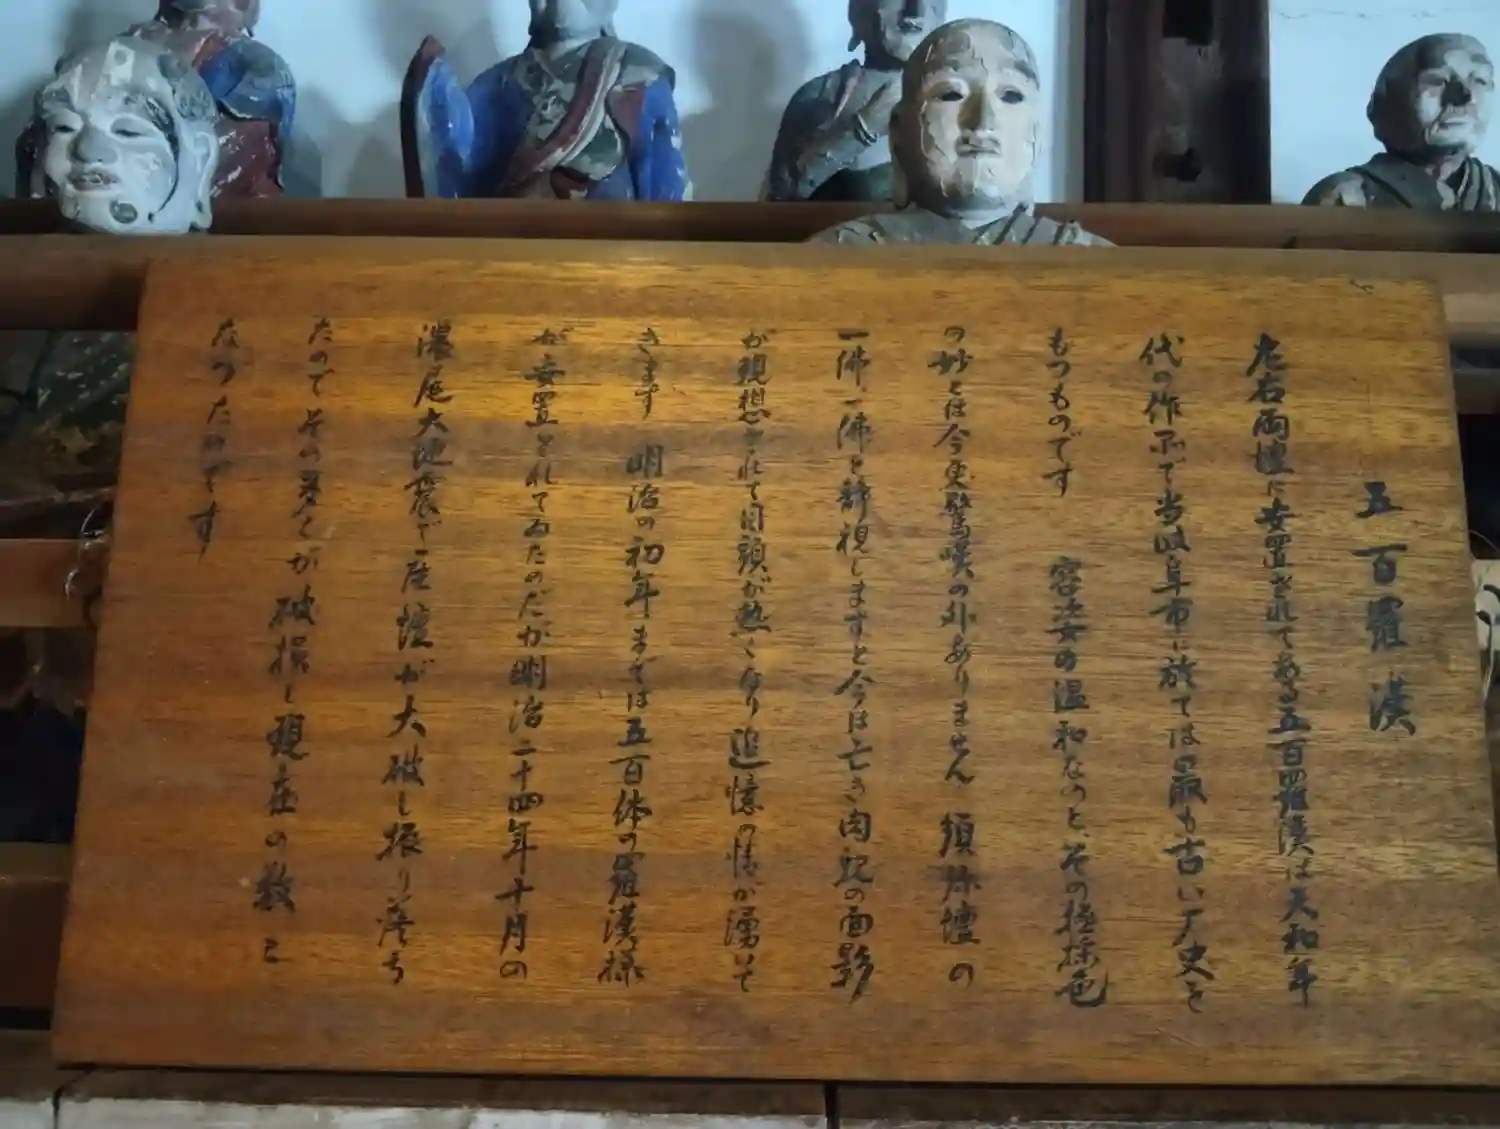 五百羅漢
左右両壇に安置されてある五百羅漢は天和年
代の作品で当岐阜市に於ては最も古い歴史を
もつものです 容姿の温和なのと、その極採色
の妙とは今更驚嘆の外ありません 須弥壇の
一佛、一佛と静視しますと今は亡き肉親の面影
が現想されて目頭が熱くなり追憶の情が湧いて
きます 明治の初年までは五百体の羅漢様
が安置されてゐたのだが明治二十四年十月の
濃尾大地震で座壇が大破し振り落ち
たのでその多くが破損し現在の数と
なつたのです